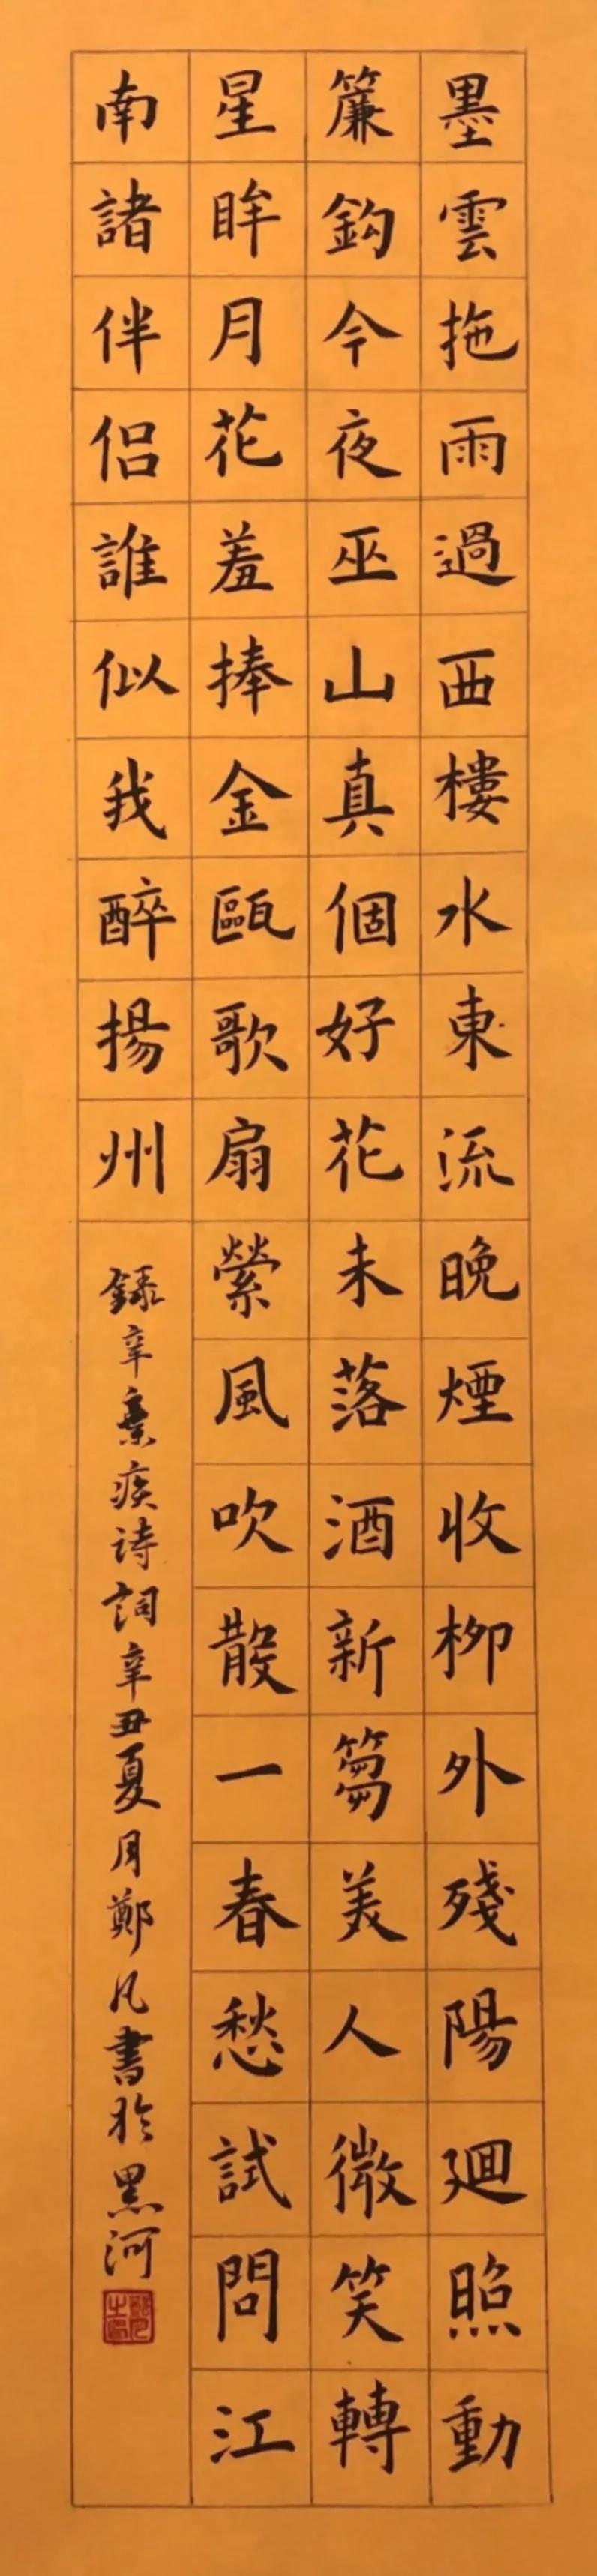 墨雲拖雨過西樓水東流晚煙收柳外殘陽廻照動
簾鈎今夜巫山真個好花未落酒新篘美人微笑轉
星眸月花羞捧金甌歌扇縈風吹散一春愁試問江
南諸伴侶誰似我醉揚州
錄辛棄疾詩詞辛丑夏月鄭凡書於黑河